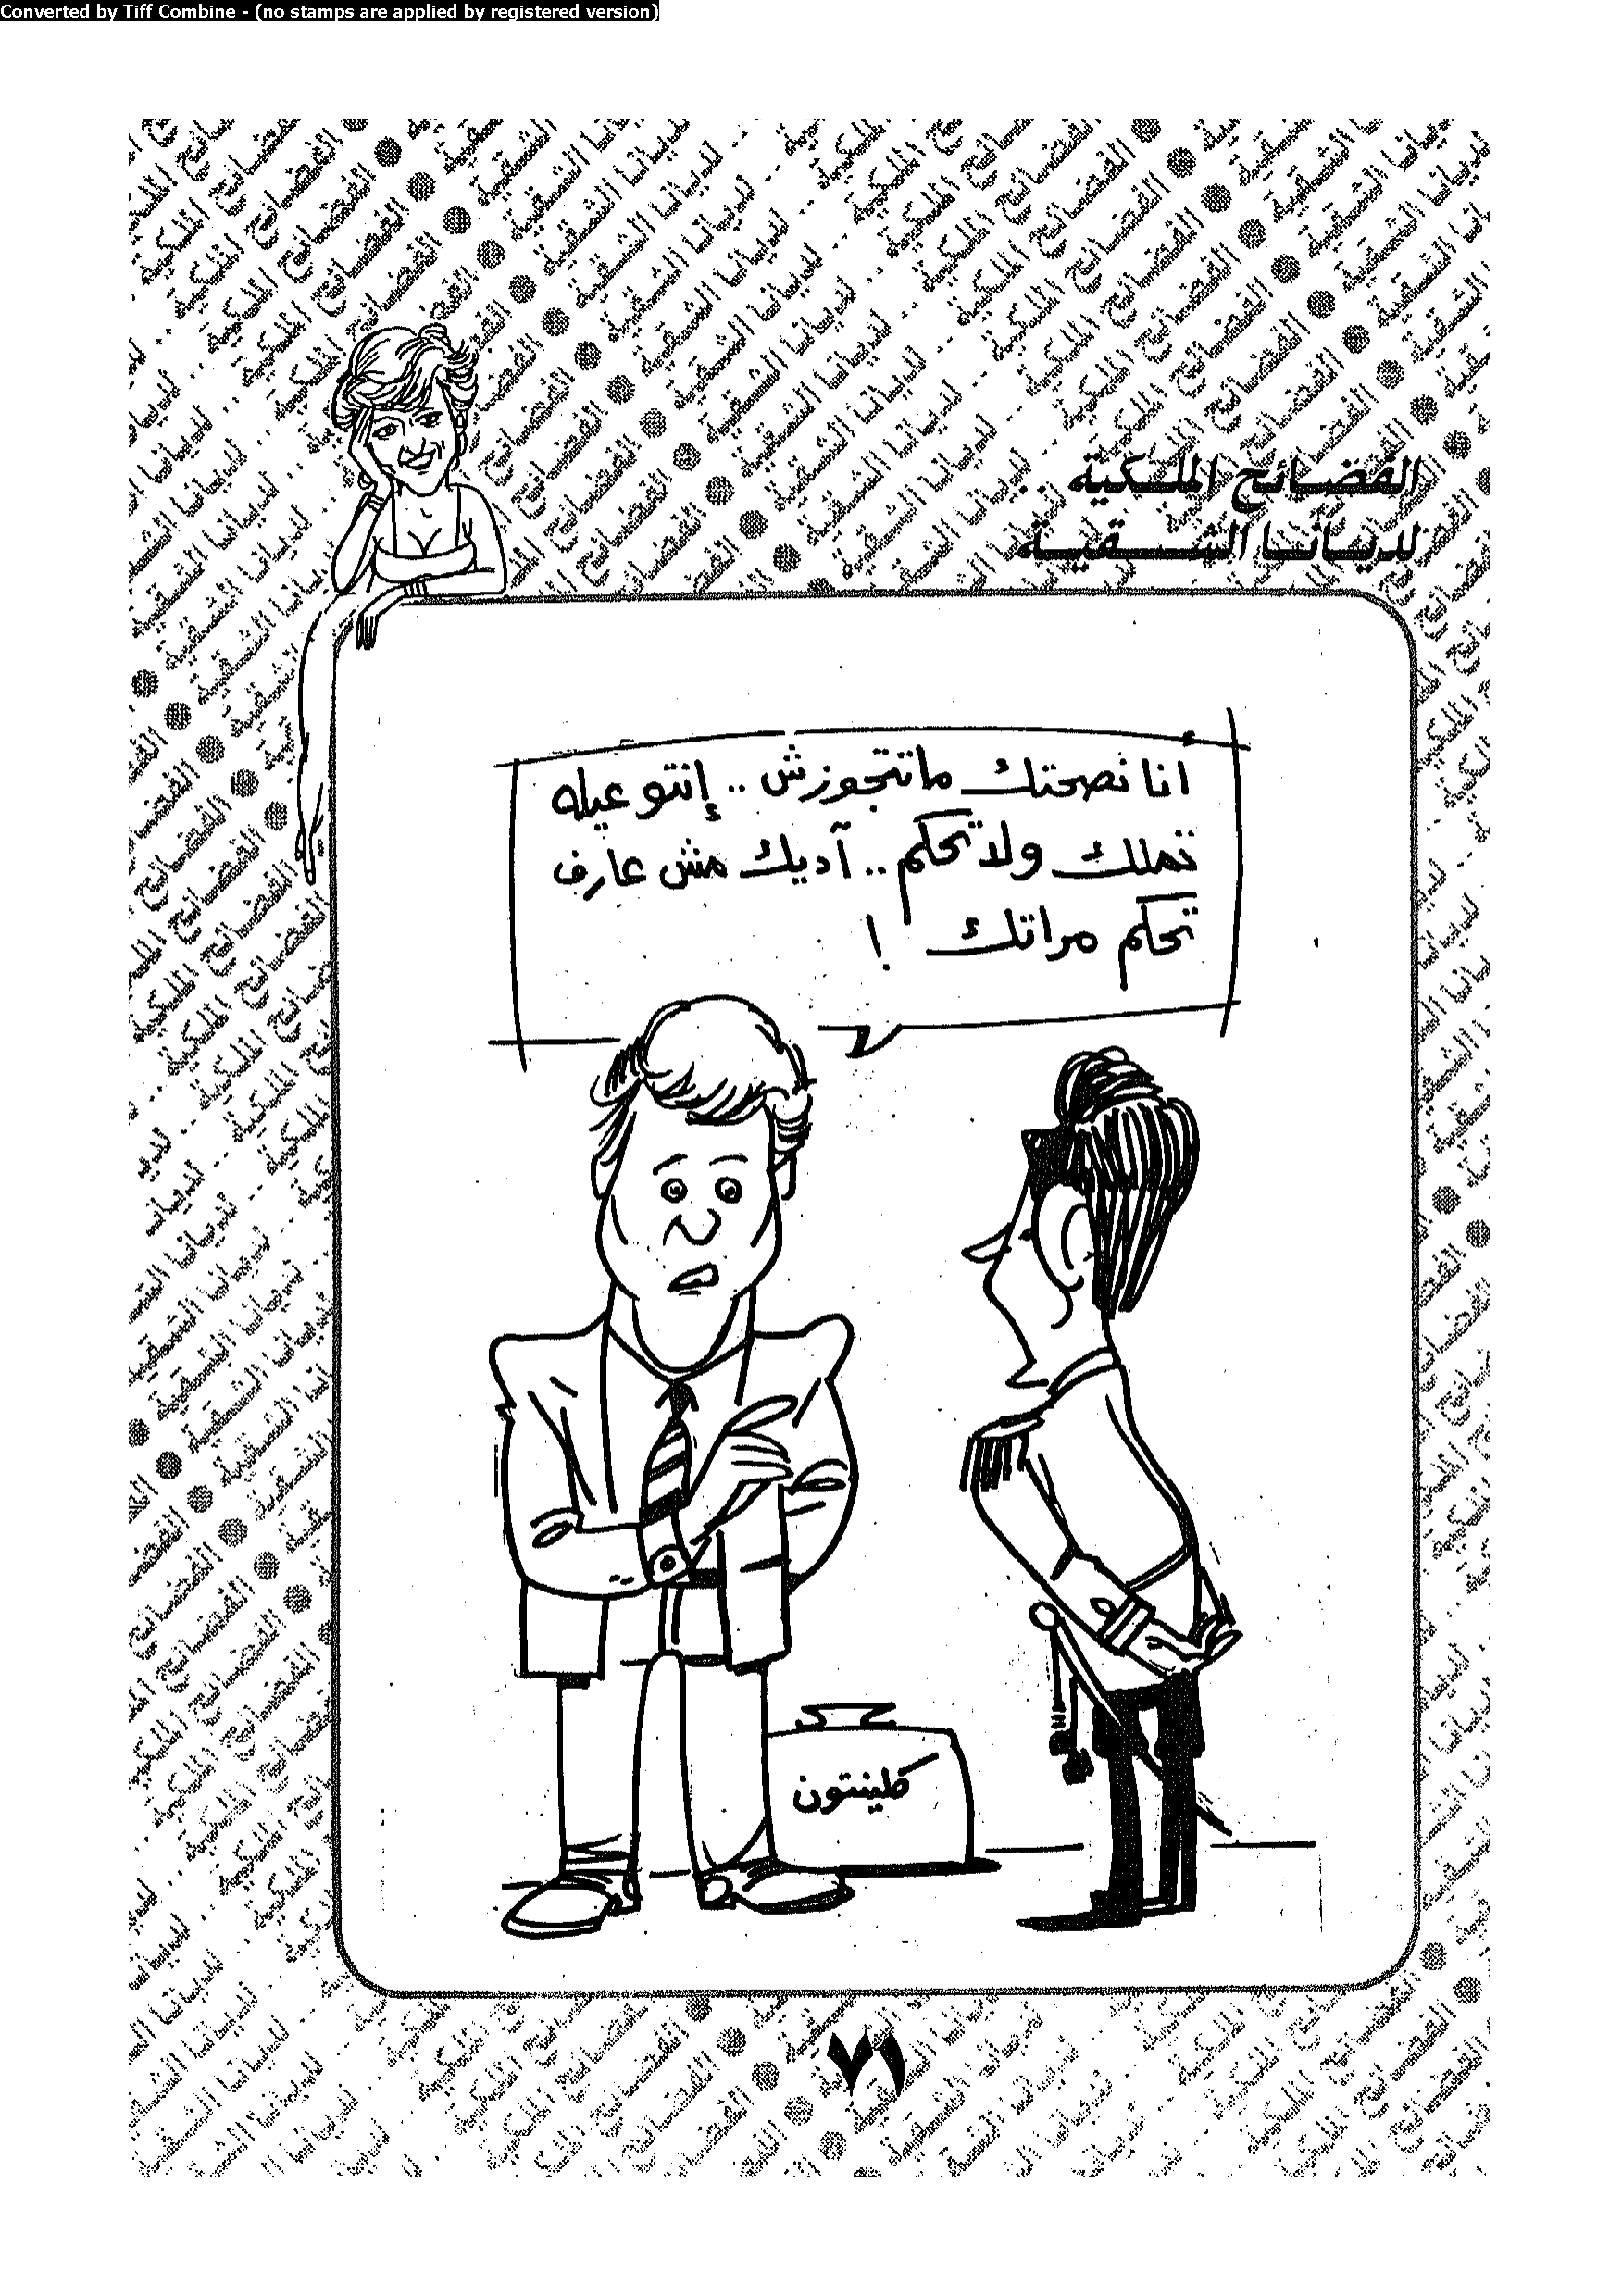 Converted by Tiff Combine - (no stamps are applied by registered version)
الفضائح الملكية
لديانا الشقية
أنا نصحتك ماتتجوزش .. إنتو عيله
تملك ولا تحكم .. آديك مش عارف
تحكم مراتك !
كلينتون
٧١